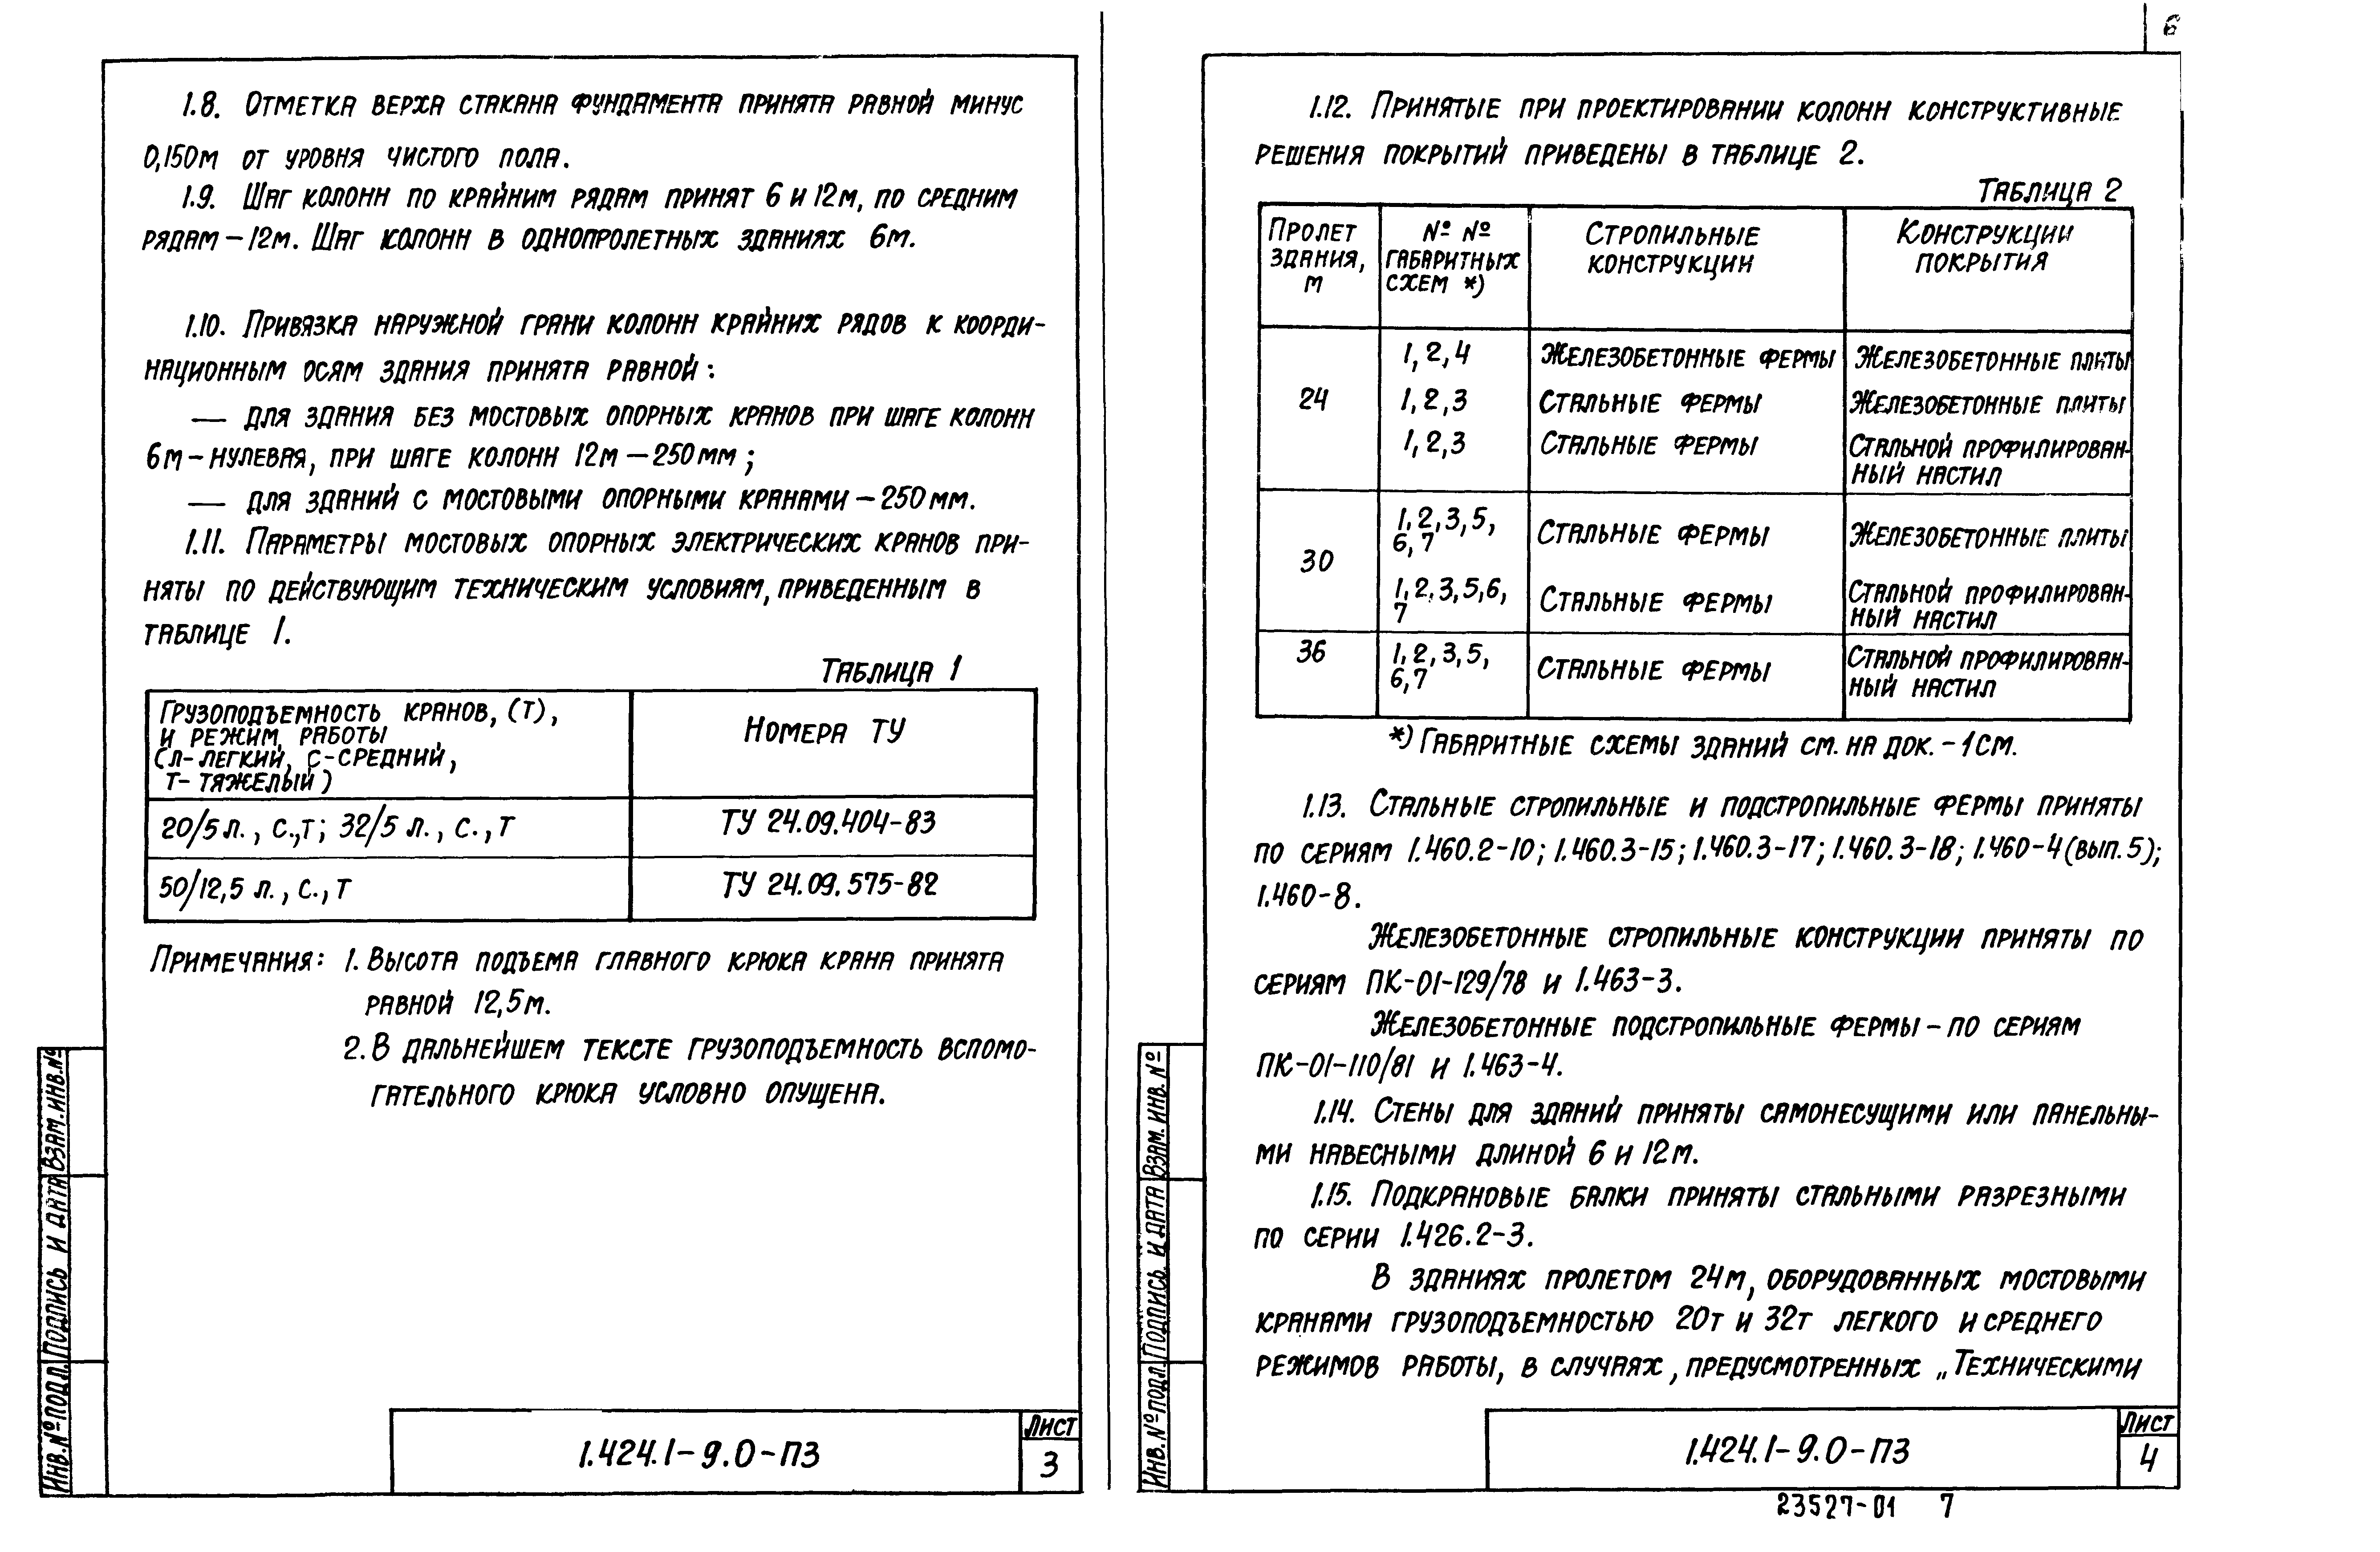 1.8. Отметка верха стакана фундамента принята равной минус
0,150м от уровня чистого пола.
1.9. Шаг колонн по крайним рядам принят 6 и 12м, по средним
рядам – 12м. Шаг колонн в однопролетных зданиях 6м.
1.10. Привязка наружной грани колонн крайних рядов к коорди-
национным осям здания принята равной:
— для здания без мостовых опорных кранов при шаге колонн
6м – нулевая, при шаге колонн 12м — 250мм;
— для зданий с мостовыми опорными кранами – 250мм.
1.11. Параметры мостовых опорных электрических кранов при-
няты по действующим техническим условиям, приведенным в
таблице 1.
Таблица 1
Грузоподъемность кранов, (т),
и режим работы
(л-легкий, с-средний,
т-тяжелый)
Номера ТУ
20/5 л., с.,т; 32/5 л., с., т
ТУ 24.09.404-83
50/12,5 л., с., т
ТУ 24.09.575-82
Примечания: 1. Высота подъема главного крюка крана принята
равной 12,5м.
2. В дальнейшем тексте грузоподъемность вспомо-
гательного крюка условно опущена.
Инв.№подл. Подпись и дата Взам.инв.№
1.424.1-9.0-ПЗ
Лист
3
6
1.12. Принятые при проектировании колонн конструктивные
решения покрытий приведены в таблице 2.
Таблица 2
Пролет
здания,
м
№ №
габаритных
схем *)
Стропильные
конструкции
Конструкции
покрытия
24
1, 2, 4
Железобетонные фермы
Железобетонные плиты
1, 2, 3
Стальные фермы
Железобетонные плиты
1, 2, 3
Стальные фермы
Стальной профилирован-
ный настил
30
1, 2, 3, 5,
6, 7
Стальные фермы
Железобетонные плиты
1, 2, 3, 5, 6,
7
Стальные фермы
Стальной профилирован-
ный настил
36
1, 2, 3, 5,
6, 7
Стальные фермы
Стальной профилирован-
ный настил
*) Габаритные схемы зданий см. на док. - 1СМ.
1.13. Стальные стропильные и подстропильные фермы приняты
по сериям 1.460.2-10; 1.460.3-15; 1.460.3-17; 1.460.3-18; 1.460-4 (вып.5);
1.460-8.
Железобетонные стропильные конструкции приняты по
сериям ПК-01-129/78 и 1.463-3.
Железобетонные подстропильные фермы – по сериям
ПК-01-110/81 и 1.463-4.
1.14. Стены для зданий приняты самонесущими или панельны-
ми навесными длиной 6 и 12м.
1.15. Подкрановые балки приняты стальными разрезными
по серии 1.426.2-3.
В зданиях пролетом 24м, оборудованных мостовыми
кранами грузоподъемностью 20т и 32т легкого и среднего
режимов работы, в случаях, предусмотренных „Техническими
Инв.№подл. Подпись и дата Взам. инв. №
1.424.1-9.0-ПЗ
Лист
4
23527-01 7